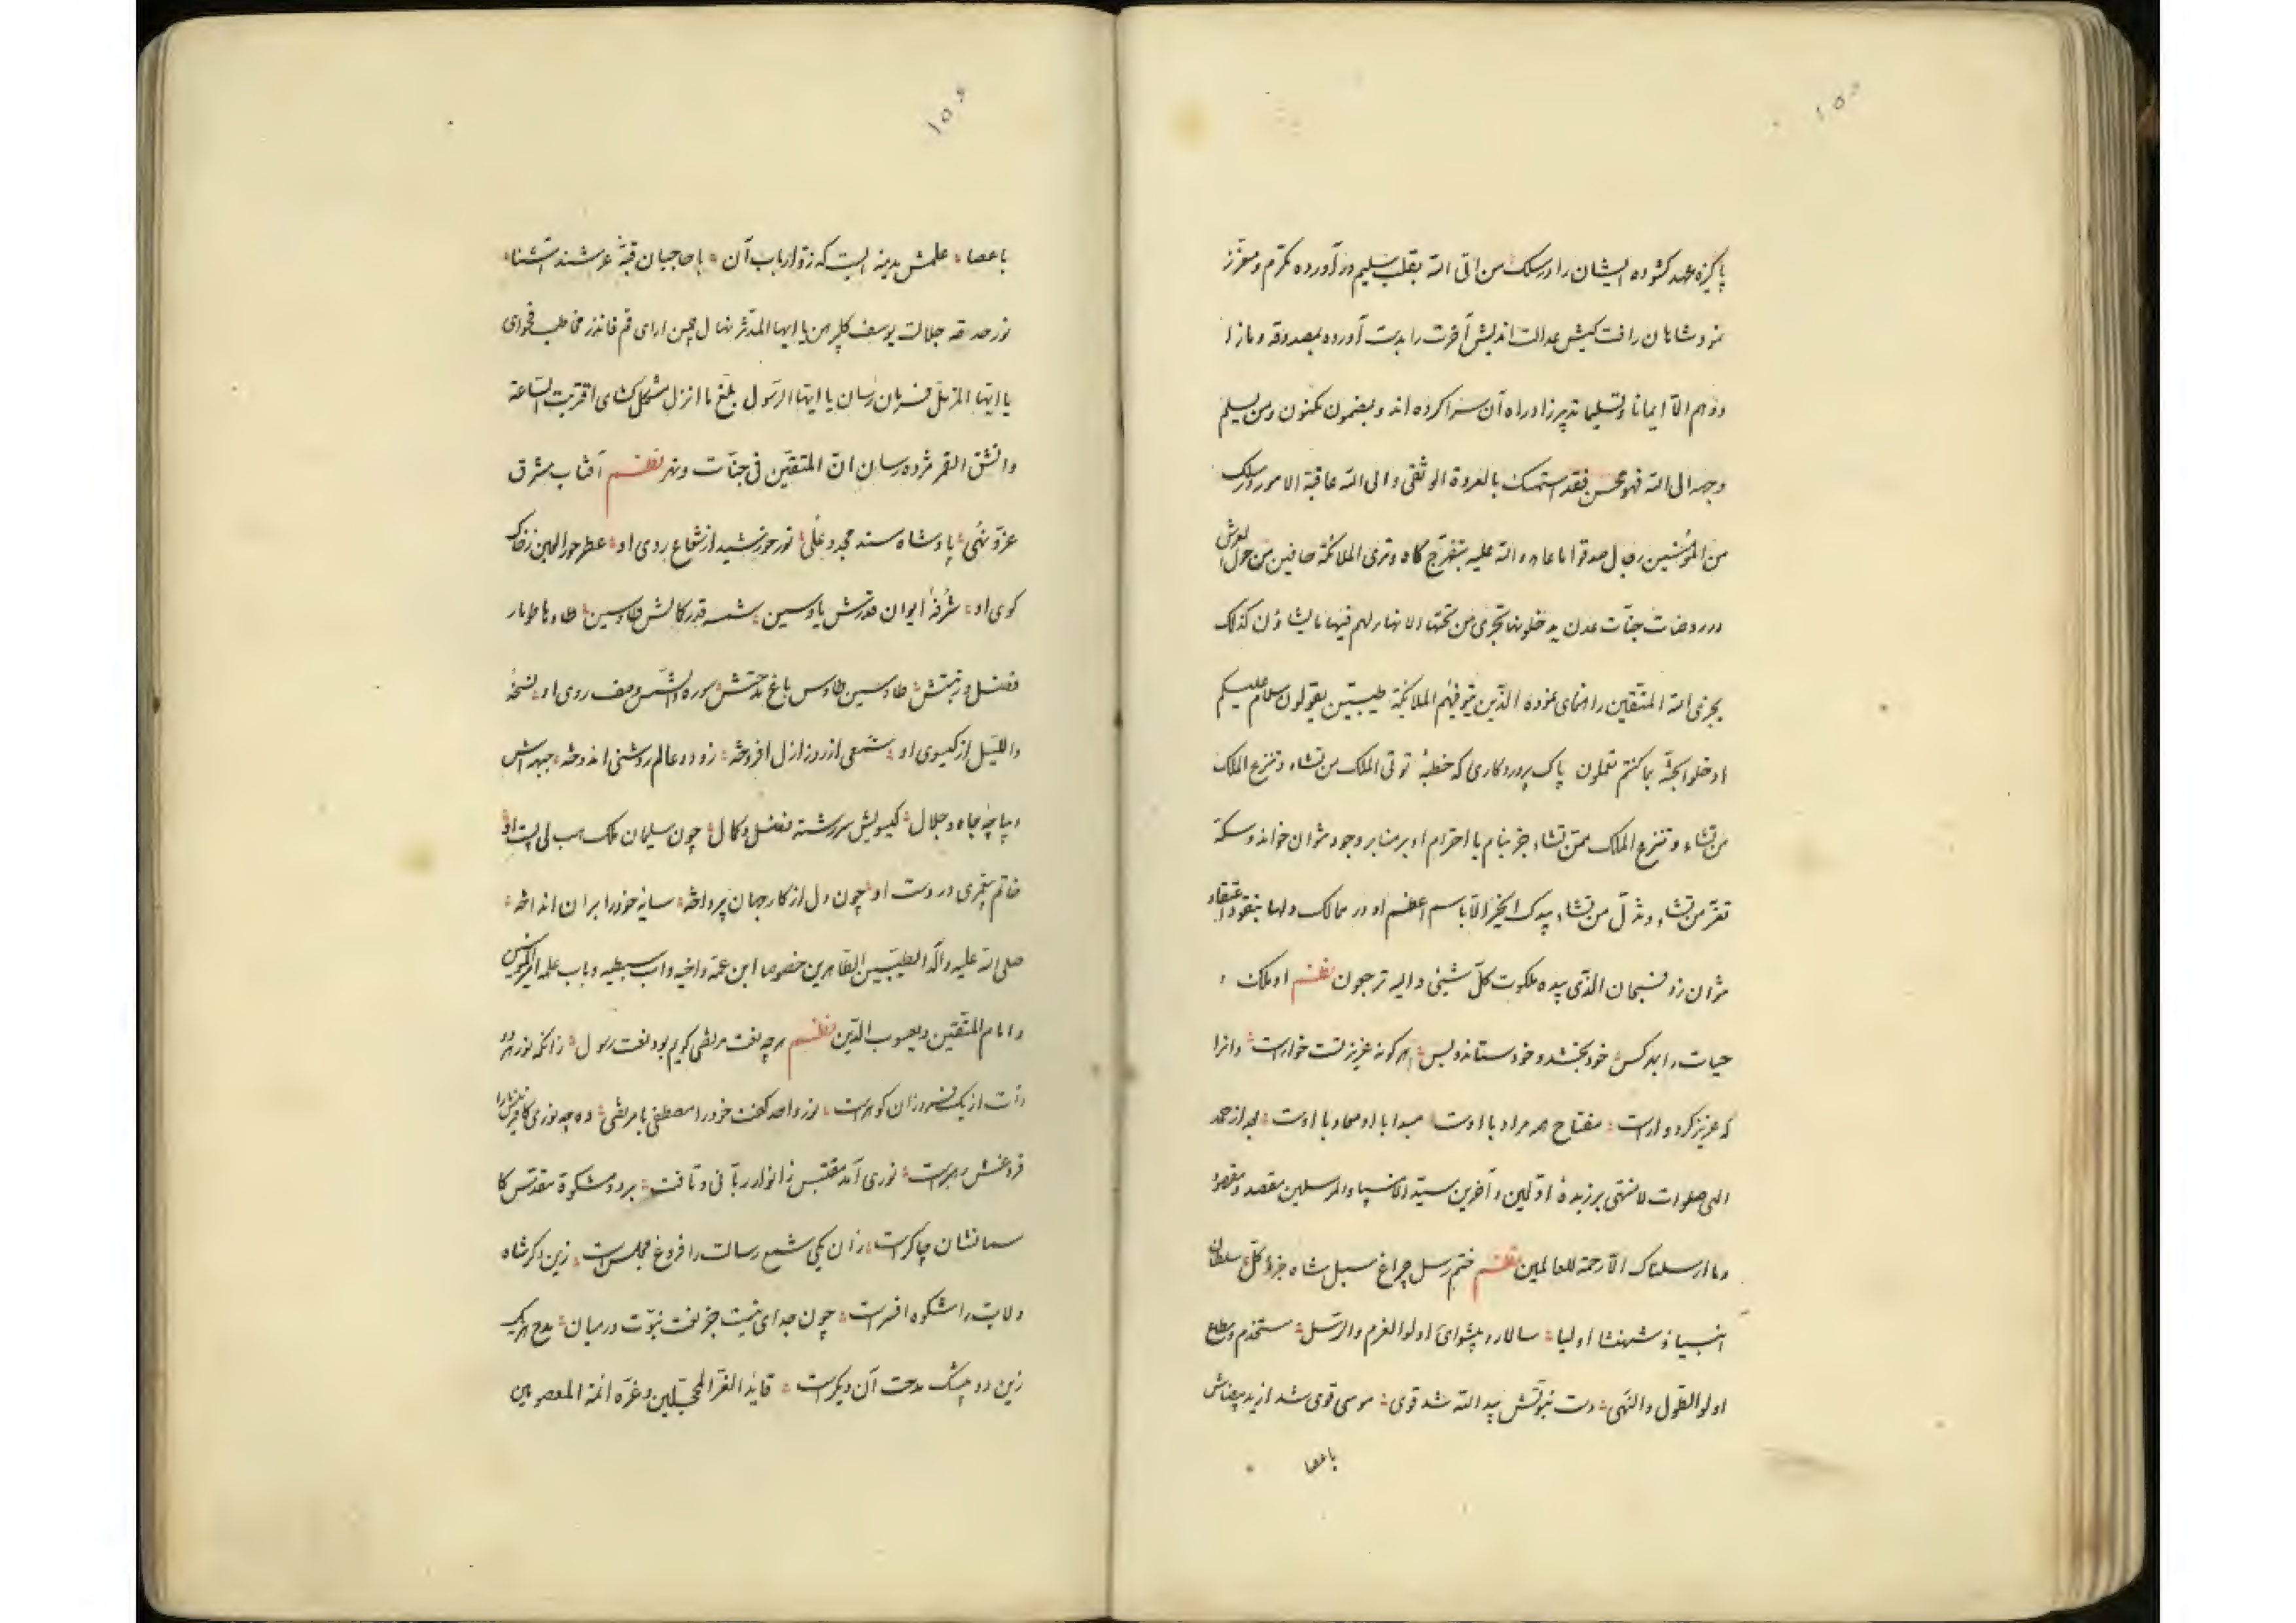 پاکیزه عهد کشوده ایشان را در سلک من اتی الله بقلب سلیم در آورده مکرم و معزز
نزد شاهان رافت کیش عدالت اندیش آخرت را بدست آورده بمصدوقه و مازا
دهم الا ایمانا و تسلیما تدبیر زاد راه آن سرا کرده اند و بمضمون مکنون و من یسلم
وجهه الی الله فهو محسن فقد استمسک بالعروة الوثقی و الی الله عاقبة الامور در سلک
من المؤمنین رجال صدقوا ما عاهدوا الله علیه بتفرج کاه و تری الملائکة حافین من حول العرش
در روضات جنات عدن یدخلونها تجری من تحتها الانهار لهم فیها ما یشاؤن کذلک
یجزی الله المتقین راهنمای نموده الذین تتوفیهم الملائکة طیبین یقولون سلام علیکم
ادخلوا الجنة بما کنتم تعملون پاک پروردکاری که خطبهٔ توتی الملک من تشاء و تنزع الملک
من تشاء و تنزع الملک ممن تشاء جز بنام با احترام او بر منابر وجود نتوان خواند و سکهٔ
تعز من تشاء و تذل من تشاء بیدک الخیر الا باسم اعظم او در ممالک دلها بنقود اعتقاد
نتوان زد فسبحان الذی بیده ملکوت کل شیئی و الیه ترجعون نظم او ملک
حیات را بهر کس خود بخشد و خود ستاند و بس هر کونه عزیز تست خوارست و انرا
که عزیز کرد و ارست مفتاح هر مراد با اوست مبدا با او معاد با اوست بعد از حمد
الهی صلوات لا منتهی بر زبدهٔ اولین و آخرین سید الانبیاء و المرسلین مقصد و مقصود
و ما ارسلناک الا رحمة للعالمین نظم ختم رسل چراغ سبل شاه جزو و کل سلطان
انبیا و شهنشا اولیا سالار و پیشوای اولوا العزم و الرسل مستخدم و مطاع
اولو الطول و النهی دست نبوتش ید الله شد قوی موسی قوی شد از ید بیضاش
باعصا
باعصا علمش مدینه ایست که زوار باب آن با حاجیان قبهٔ عرشند آشنا
نور حدقه جلالت یوسف کلپرهن یا ایها المدثر نهال چمن ارای قم فانذر مخاطب فحوای
یا ایها المزمل فرمان رسان یا ایها الرسول بلغ ما انزل مشکل کشای اقتربت الساعة
و انشق القمر مژده رسان ان المتقین فی جنات و نهر نظم آفتاب مشرق
عز و نهی پادشاه مسند مجد و علی نور خورشید از شعاع روی او عطر حور العین ز خاک
کوی او شرفهٔ ایوان قدرش یا و سین شمسه قدر کمالش طا و سین طا و ها طومار
فضل و رتبتش طا و سین طاوس باغ مدحتش سوره و الشمس وصف روی او نسخهٔ
و اللیل از کیسوی او شمعی از روز ازل افروخته زو دو عالم روشنی اندوخته جبهه اش
دیباچه جاه و جلال کیسویش سررشته فضل و کمال چون سلیمان ملک هب لی پست او
خاتم پیغمبری در دست او چون دل از کار جهان پرداخته سایه خود را بر ان انداخته
صلی الله علیه و آله الطیبین الطاهرین خصوصا ابن عمه و اخیه و اب سبطیه و باب علمه امیر المؤمنین
و امام المتقین و یعسوب الدین نظم هر چه نعت مرتضی کویم بود نعت رسول زانکه نور هر دو
ذات از یک فروزان کوهرست نور واحد کفت خود را مصطفی با مرتضی وه چه نوری کافرینش را
فروغش رهبرست نوری آمد مقتبس ز انوار ربانی و تافت بر دو مشکوة مقدس کا
سمانشان چاکرست زان یکی شمع رسالت را فروغ مجلس است زین دکر شاه
ولایت را شکوه افسرست چون جدای نیست جز نعت نبوت در میان مدح هر یک
زین دو بیشک مدحت آن دیکرست قاید الغر المحجلین و غره ائمة المعصومین